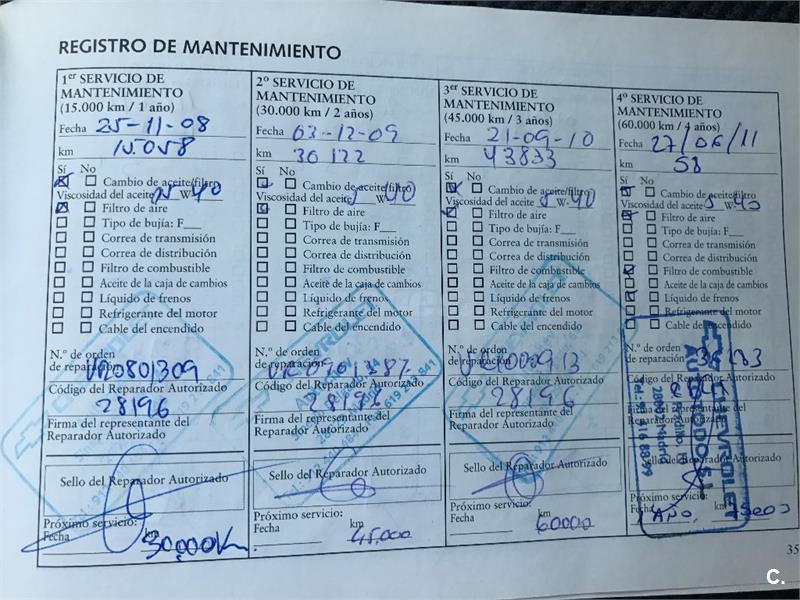 REGISTRO DE MANTENIMIENTO
1er SERVICIO DE
MANTENIMIENTO
(15.000 km / 1 año)
Fecha 25-11-08
km 15.058
Sí No
Cambio de aceite/filtro
Viscosidad del aceite W- 40
Filtro de aire
Tipo de bujía: F___
Correa de transmisión
Correa de distribución
Filtro de combustible
Aceite de la caja de cambios
Líquido de frenos
Refrigerante del motor
Cable del encendido
N.º de orden
de reparación 0801309
Código del Reparador Autorizado
28196
Firma del representante del
Reparador Autorizado
Sello del Reparador Autorizado
Próximo servicio:
Fecha km 30,000Km
2º SERVICIO DE
MANTENIMIENTO
(30.000 km / 2 años)
Fecha 03-12-09
km 30122
Sí No
Cambio de aceite/filtro
Viscosidad del aceite 5 W- 40
Filtro de aire
Tipo de bujía: F___
Correa de transmisión
Correa de distribución
Filtro de combustible
Aceite de la caja de cambios
Líquido de frenos
Refrigerante del motor
Cable del encendido
N.º de orden
de reparación
Código del Reparador Autorizado
28196
Firma del representante del
Reparador Autorizado
Sello del Reparador Autorizado
Próximo servicio:
Fecha km 45,000
3er SERVICIO DE
MANTENIMIENTO
(45.000 km / 3 años)
Fecha 21-09-10
km 43833
Sí No
Cambio de aceite/filtro
Viscosidad del aceite 5 W- 40
Filtro de aire
Tipo de bujía: F___
Correa de transmisión
Correa de distribución
Filtro de combustible
Aceite de la caja de cambios
Líquido de frenos
Refrigerante del motor
Cable del encendido
N.º de orden
de reparación
Código del Reparador Autorizado
28196
Firma del representante del
Reparador Autorizado
Sello del Reparador Autorizado
Próximo servicio:
Fecha km 60000
4º SERVICIO DE
MANTENIMIENTO
(60.000 km / 4 años)
Fecha 27/06/11
km 58
Sí No
Cambio de aceite/filtro
Viscosidad del aceite 5 W- 40
Filtro de aire
Tipo de bujía: F___
Correa de transmisión
Correa de distribución
Filtro de combustible
Aceite de la caja de cambios
Líquido de frenos
Refrigerante del motor
Cable del encendido
N.º de orden
de reparación
Código del Reparador Autorizado
Firma del representante del
Reparador Autorizado
Sello del Reparador Autorizado
Próximo servicio:
Fecha 1 AÑO km 75000
CHEVROLET
35
C.